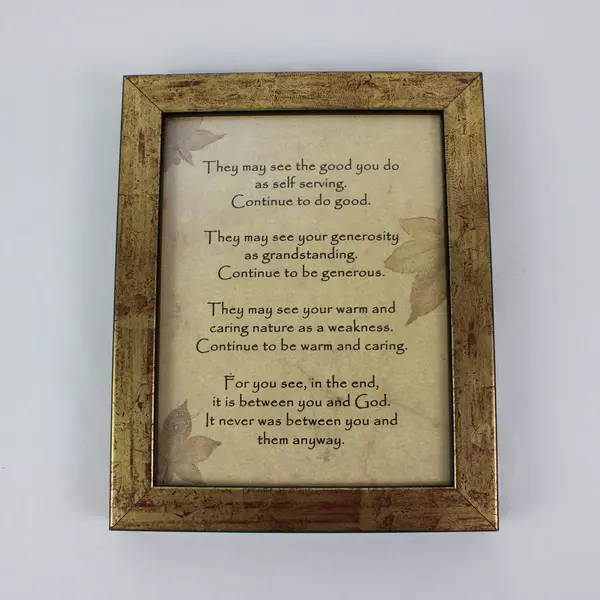 They may see the good you do
as self serving.
Continue to do good.
They may see your generosity
as grandstanding.
Continue to be generous.
They may see your warm and
caring nature as a weakness.
Continue to be warm and caring.
For you see, in the end,
it is between you and God.
It never was between you and
them anyway.